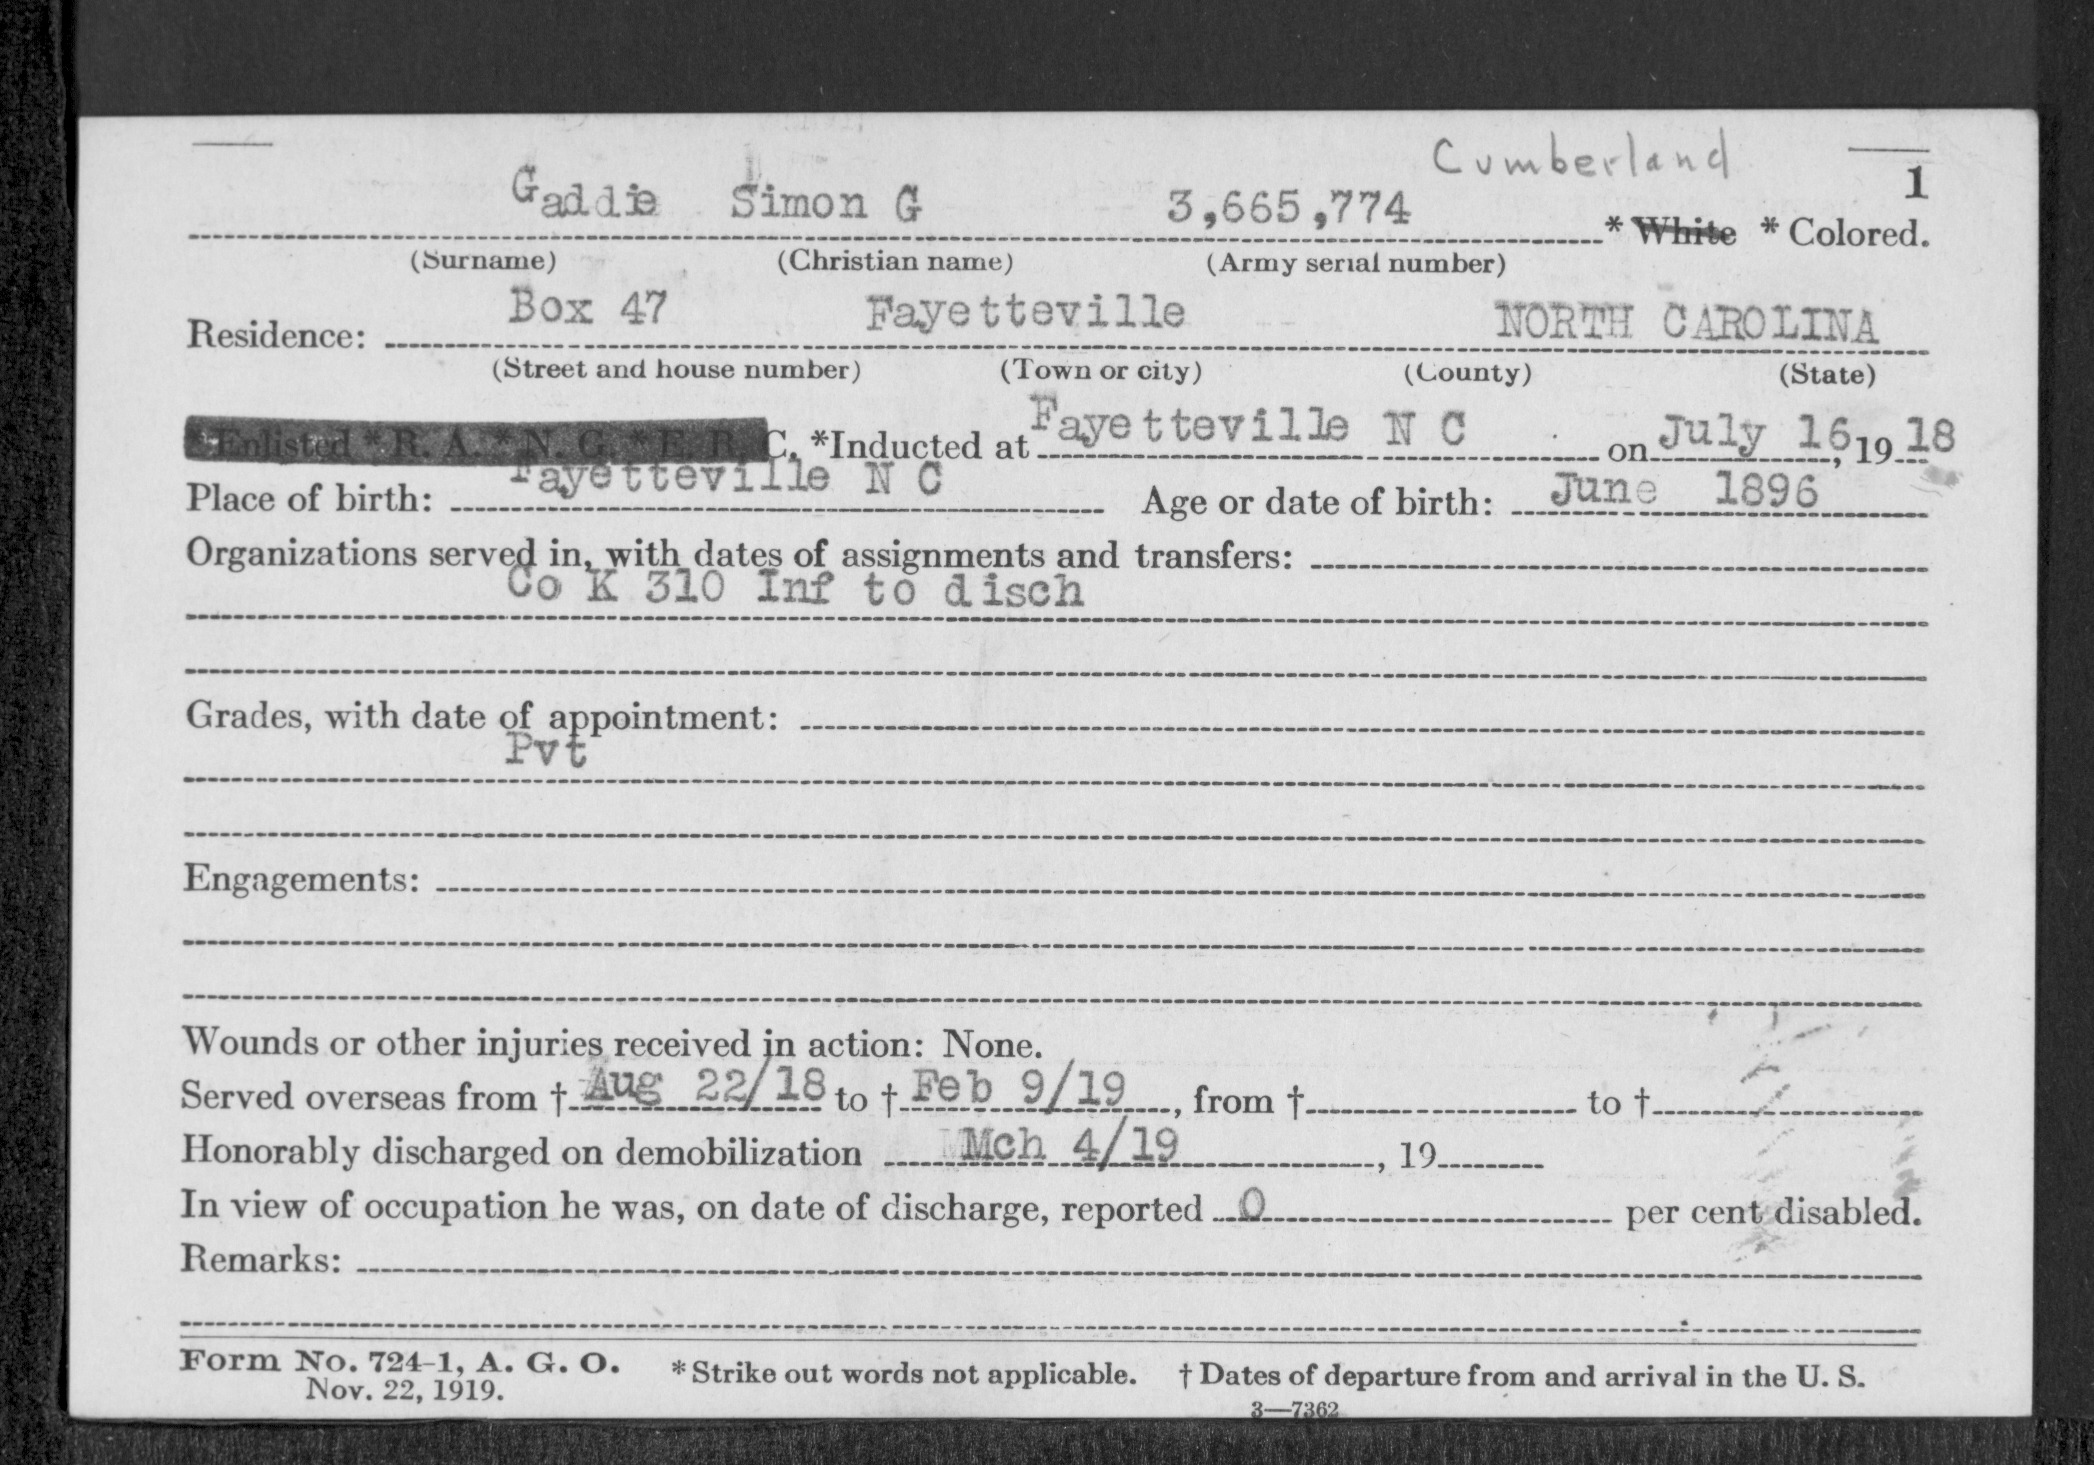 Cumberland
1
Gaddie Simon G 3,665,774 * White * Colored.
(Surname) (Christian name) (Army serial number)
Box 47 Fayetteville NORTH CAROLINA
Residence:
(Street and house number) (Town or city) (County) (State)
*Enlisted *R. A. *N. G. *E. R. C. *Inducted at Fayetteville N C on July 16, 19 18
Place of birth: Fayetteville N C Age or date of birth: June 1896
Organizations served in, with dates of assignments and transfers:
Co K 310 Inf to disch
Grades, with date of appointment:
Pvt
Engagements:
Wounds or other injuries received in action: None.
Served overseas from † Aug 22/18 to † Feb 9/19, from † to †
Honorably discharged on demobilization Mch 4/19, 19
In view of occupation he was, on date of discharge, reported 0 per cent disabled.
Remarks:
Form No. 724-1, A. G. O. * Strike out words not applicable. † Dates of departure from and arrival in the U. S.
Nov. 22, 1919.
3—7362